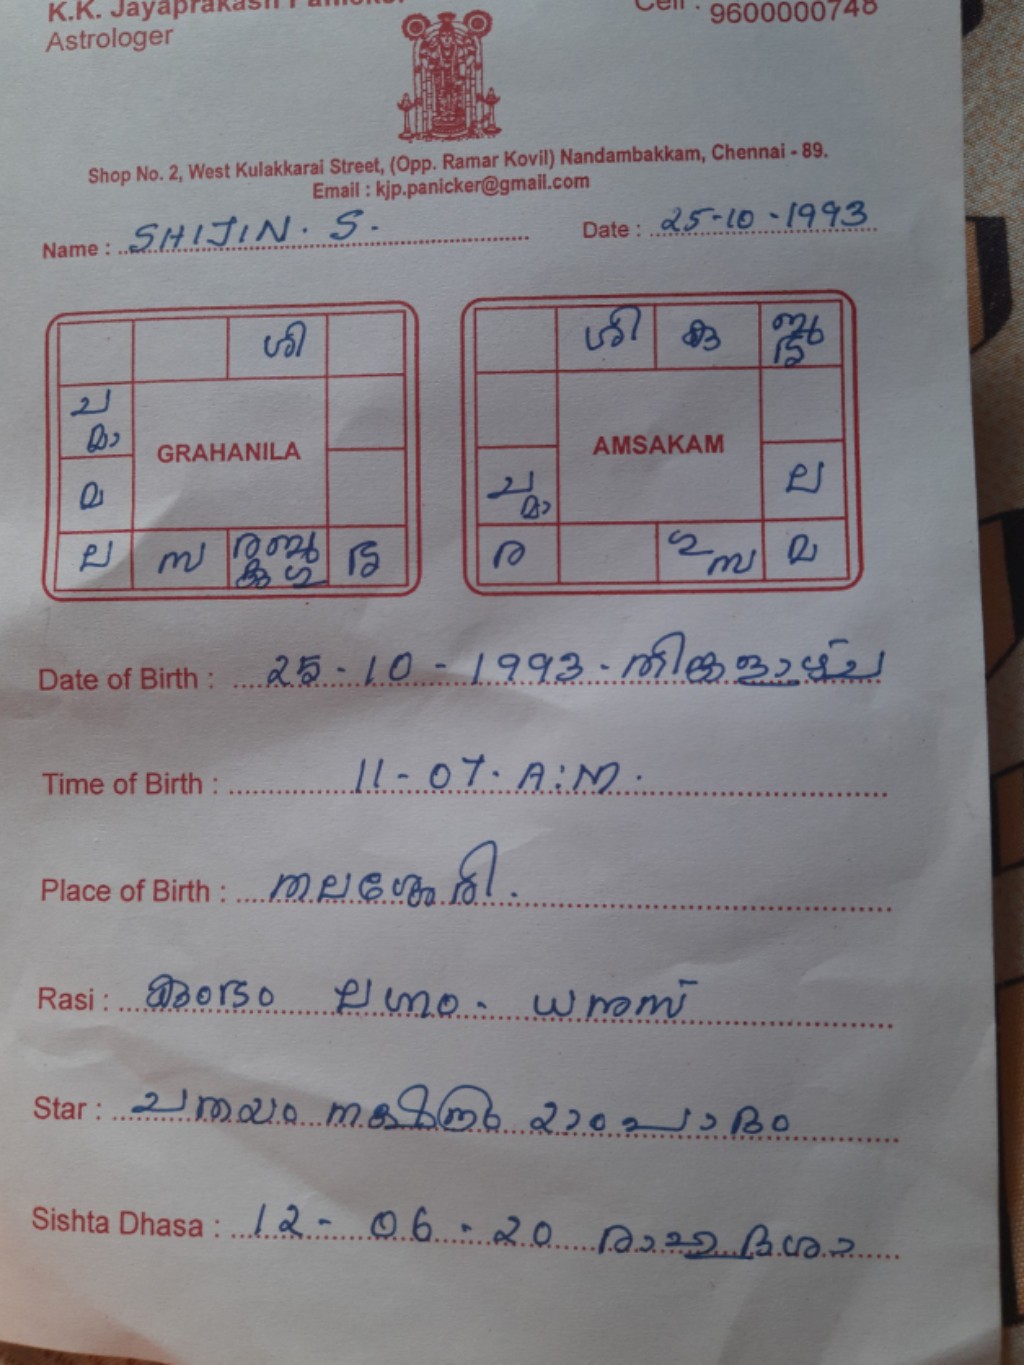 K.K. Jayaprakash Panicker
Cell : 9600000748
Astrologer
Shop No. 2, West Kulakkarai Street, (Opp. Ramar Kovil) Nandambakkam, Chennai - 89.
Email : kjp.panicker@gmail.com
Name : SHIJIN. S.
Date : 25-10-1993
ശി
ച
മാ
GRAHANILA
മ
ല സ ര ബു ഭ
കു ഗു
ശി കു ബു
ഭ
AMSAKAM
ല
ച
മാ
ര ഗു സ മ
Date of Birth : 25-10-1993-തിങ്കളാഴ്ച
Time of Birth : 11-07. A:M.
Place of Birth : തലശ്ശേരി.
Rasi : കുംഭം ലഗ്നം - ധനുസ്
Star : ചതയം നക്ഷത്രം 2ാം പാദം
Sishta Dhasa : 12 - 06 - 20 രാഹുദശാ